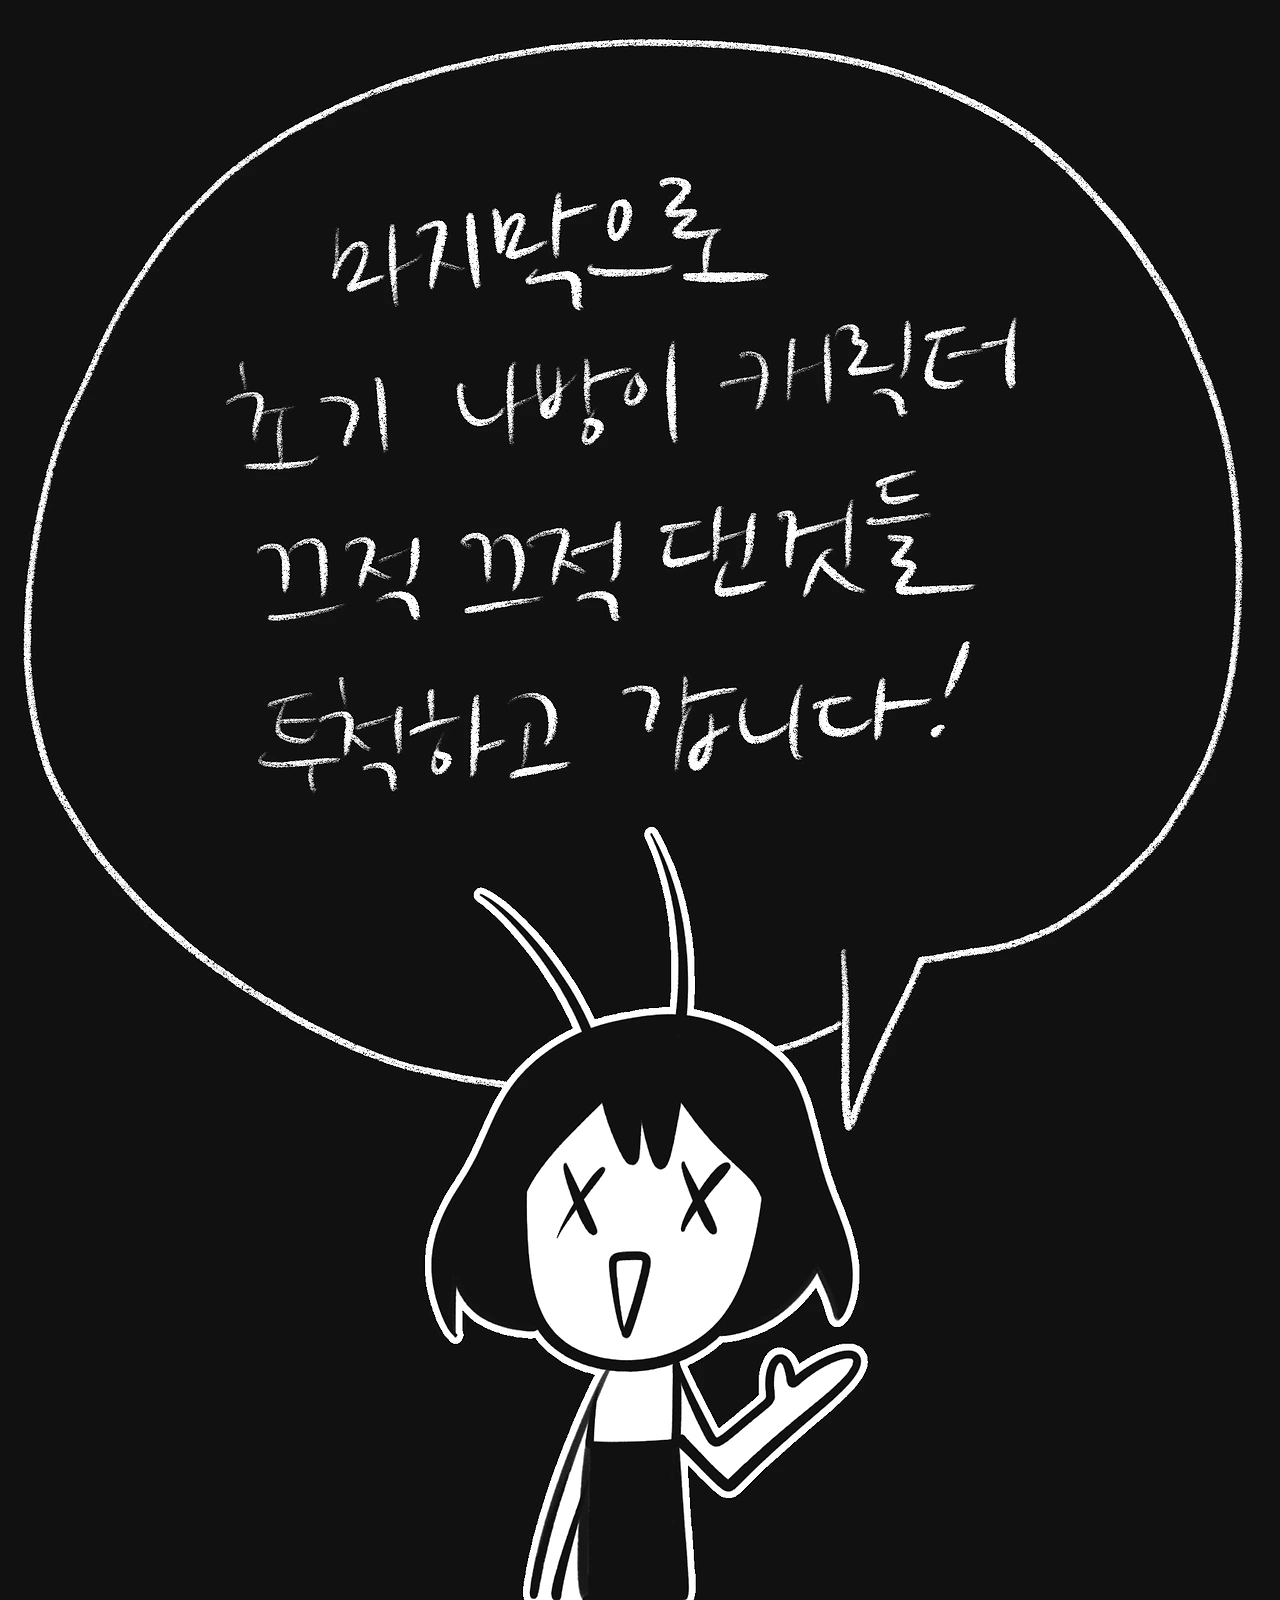 마지막으로
초기 나방이 캐릭터
끄적 끄적 댄것들
투척하고 갑니다!